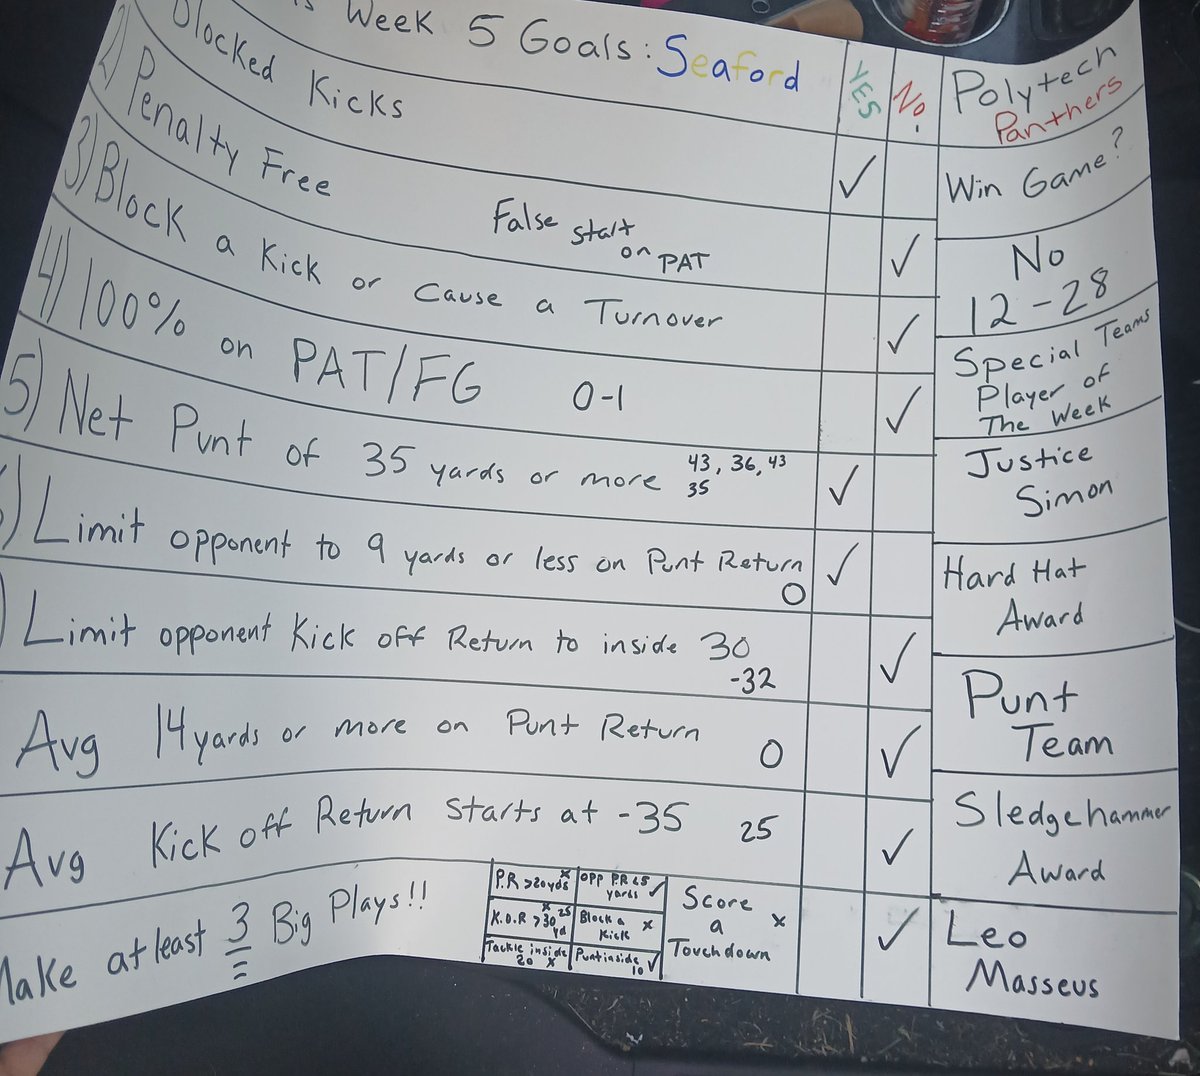 Week 5 Goals: Seaford
YES
No.
Polytech
Panthers
Blocked Kicks
Win Game?
No
12-28
2) Penalty Free
False start
on PAT
3) Block a Kick or Cause a Turnover
4) 100% on PAT/FG 0-1
Special Teams
Player of
The Week
Justice
Simon
5) Net Punt of 35 yards or more 43, 36, 43
35
) Limit opponent to 9 yards or less on Punt Return
0
Hard Hat
Award
Punt
Team
) Limit opponent Kick off Return to inside 30
-32
Avg 14 yards or more on Punt Return 0
Avg Kick off Return Starts at -35 25
Sledgehammer
Award
Leo
Masseus
Make at least 3 Big Plays!!
P.R >20yds x
OPP P.R <5
yards ✓
K.O.R >30 x 25
yd
Block a
Kick x
Tackle inside
20 x
Punt inside
10 ✓
Score
a
Touchdown x